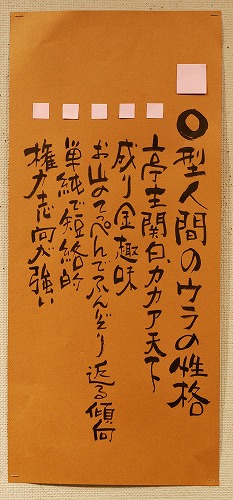 O型人間のウラの性格
亭主関白カカア天下
成り金趣味
お山のてっぺんでふんぞり返る傾向
単純で短絡的
権力志向が強い